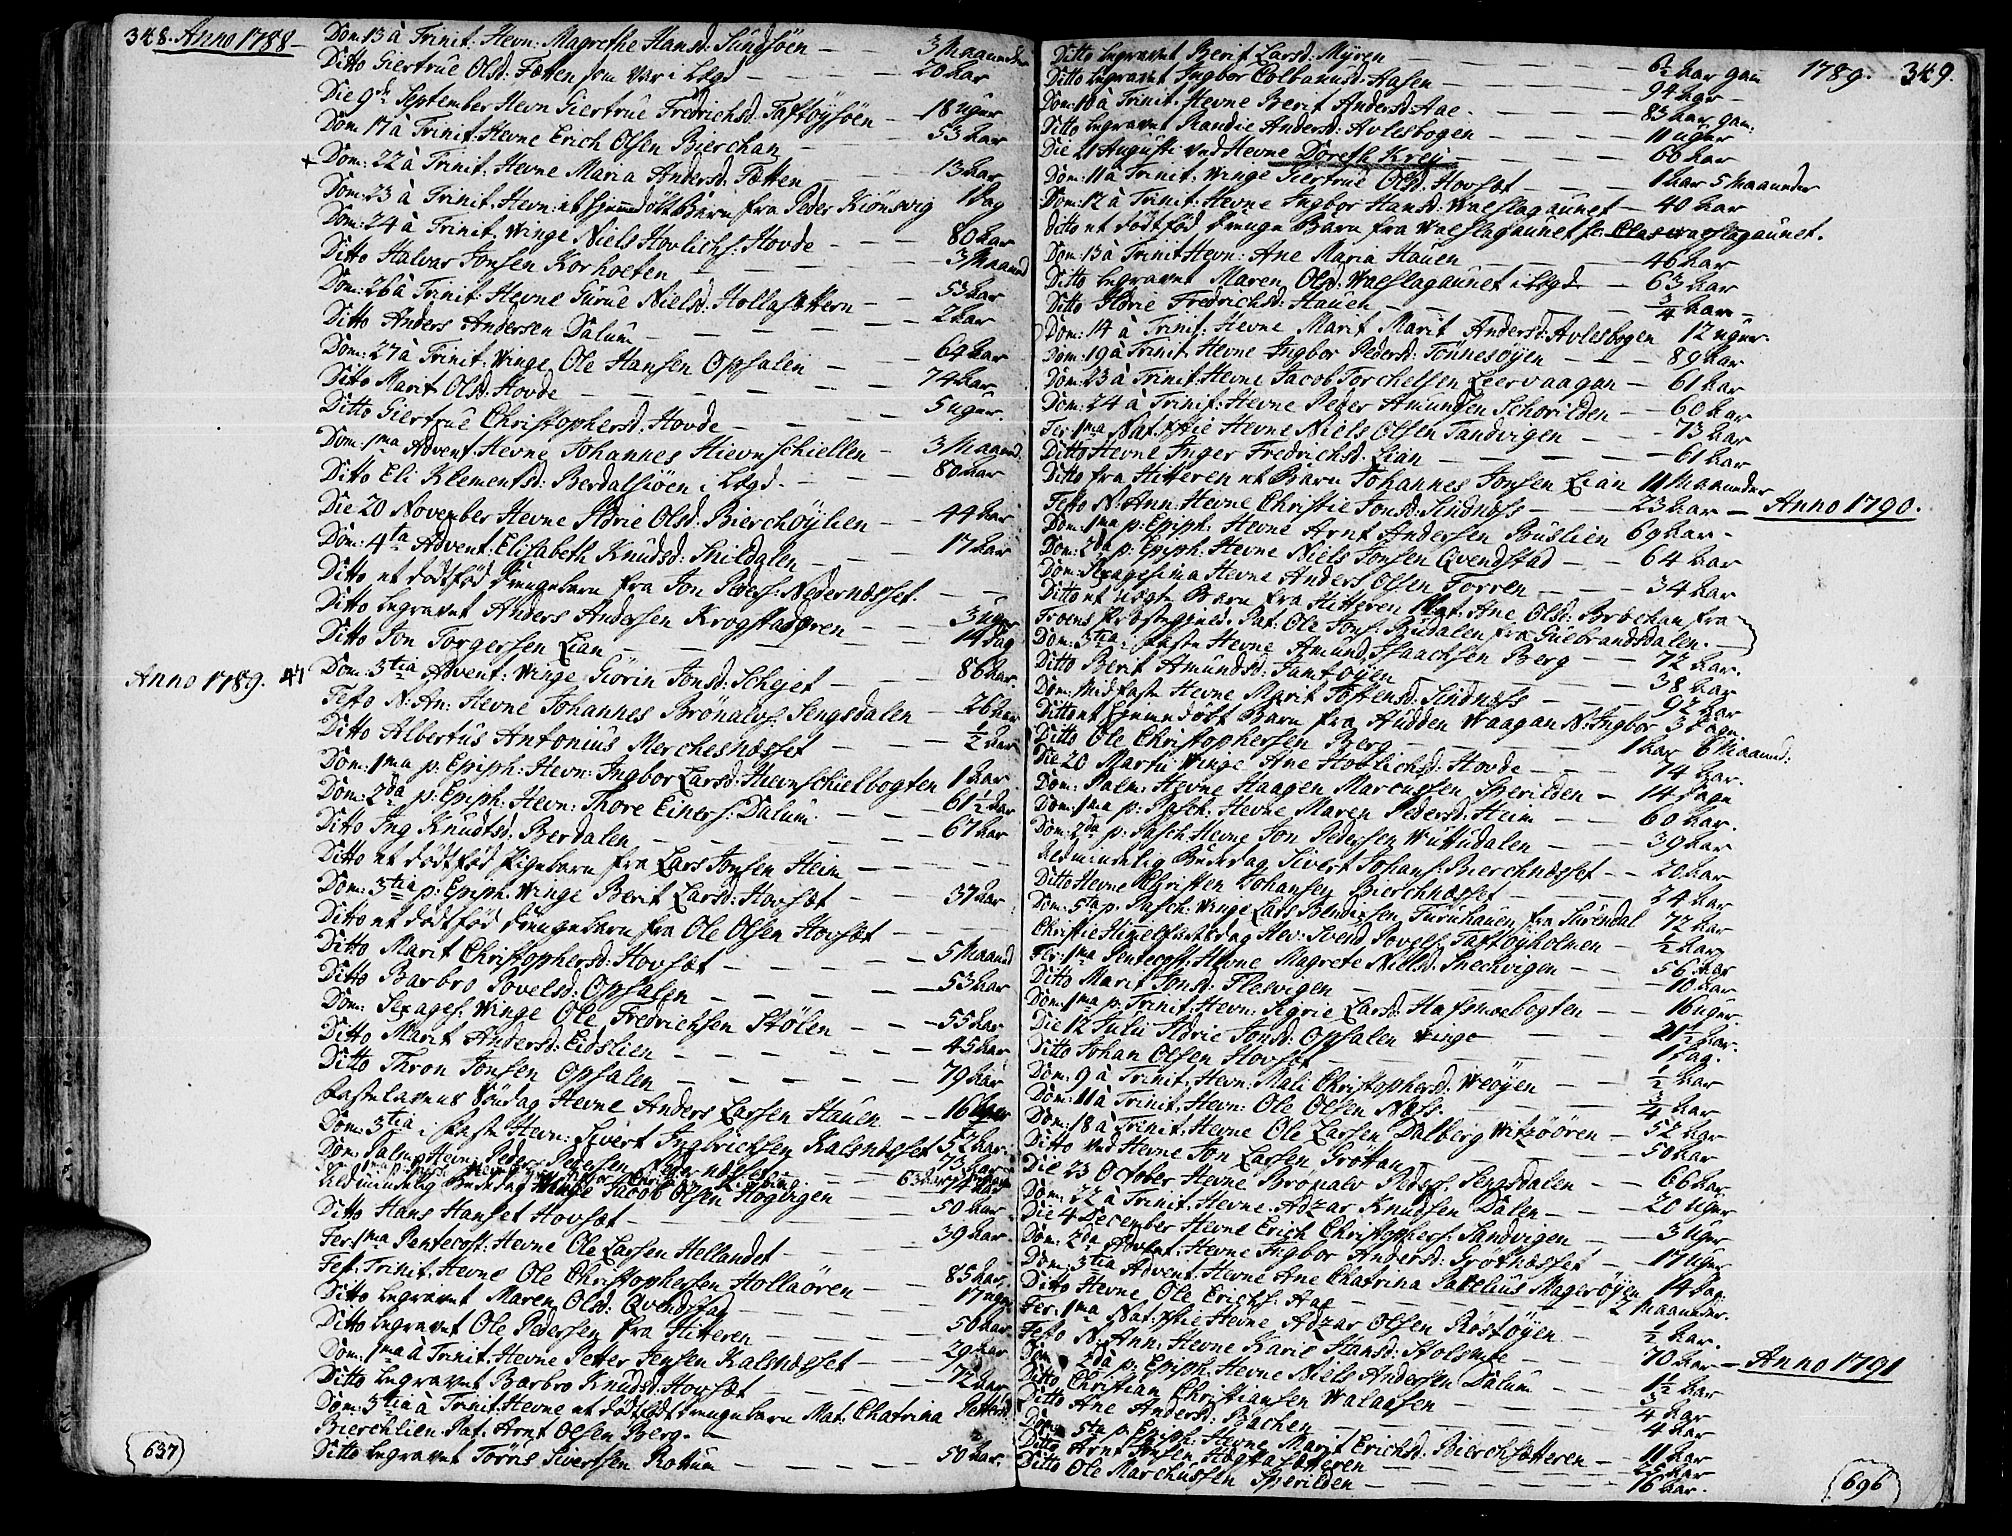 348. Anno 1788.
Dom: 13 à Trinit: Hevn: Magrethe Hansd: Sundsöen — 3 Maaneder
Ditto Giertrue Olsd: Fætten som var i Lægd — 20 Aar
Die 9de September Hevn Giertrue Fredrichsd: Taftöysöen — 18 uger
Dom: 17 à Trinit: Hevne Erich Olsen Bierchan — 53 Aar
+ Dom: 22 à Trinit: Hevne Maria Andersd: Fætten — 13 Aar
Dom: 23 à Trinit: Hevn: et hjemmedöbt Barn fra Peder Kiönsvig 1 Dag
Dom: 24 à Trinit. Winge Niels Hovlichs: Hovde — 80 Aar
Ditto Halvar Jonsen Korholten — 3 Maaned
Dom: 26 à Trinit: Hevne Gurue Nielsd: Hollasættern — 53 Aar
Ditto Anders Andersen Dalum — 2 Aar
Dom: 27 à Trinit. Winge Ole Hansen Opsalen — 64 Aar
Ditto Marit Olsd: Hovde — 74 Aar
Ditto Giertrue Christophersd: Hovde — 5 uger
Dom: 1ma Advent: Hevne Johannes Hievnschiellen — 3 Maaned:
Ditto Eli Klementsd: Berdalsiöen i Lægd. — 80 Aar
Die 20 November Hevne Aldrie Olsd: Bierchöylien — 44 Aar
Dom: 4ta Advent: Elisabeth Knudsd: Snildalen — 17 Aar
Ditto et dødfød drengebarn fra Jon Peders: Nedernæsset.
Ditto begravet Anders Andersen Krogstadören — 3 uger
Ditto Jon Torgersen Lian — 14 Dag
Anno 1789. Dom: 3tia Advent: Winge Giörin Jonsd: Schejet — 86 Aar.
Festo N: An: Hevne Johannes Brönalvs: Sengsdalen — 26 Aar
Ditto Albertus Antonius Merchesnæsset — ½ Aar
Dom: 1ma p: Epiph: Hevn: Ingbor Larsd: Hævnschielbogten 1 Aar
Dom: 2da p: Epiph: Hevn: Thore Einers: Dalum. — 61½ Aar
Ditto Ing Knudtsd: Berdalen — 67 Aar
Ditto et dödfød Pigebarn fra Lars Jonsen Heim
Dom: 3tia p: Epiph: Winge Berit Larsd: Hovsæt — 37 Aar
Ditto et dödfød drengebarn fra Ole Olsen Hovsæt
Ditto Marit Christophersd: Hovsæt — 5 Maaned
Ditto Barbro Povelsd: Opsalen — 53 Aar
Dom: Sexages: Winge Ole Fredrichsen Stölen — 55 Aar
Ditto Marit Andersd: Eidslien — 45 Aar
Ditto Taron Jonsen Opsalen — 79 Aar
Fastelavens Söndag Hevne Anders Larsen Hauen — 16
Dom: 3tia i Faste Hevn: Sivert Ingbrichsen Kalsnæsset 52 Aar
Dom: Palm: Hevn: Peder Pedersen Nedernæsset — 73 Aar
Alminnelig Bededag Winge Jacob Olsen Hogingen — 74 Aar
Ditto Hans Hanset Hovsæt — 50 Aar
Fer: 1ma Pentecost: Hevne Ole Larsen Hellandet — 39 Aar
Fest: Trinit: Hevne Ole Christophersen Hollaören — 85 Aar
Ditto begravet Maren Olsd: Qvendstad — 17 uger
Ditto begravet Ole Pedersen fra Hitteren — 50 Aar
Dom: 1ma à Trinit: Hevne Petter Jensen Kalsnæsset — 29 Aar
Ditto begravet Barbro Knudsd: Hovsæt — 72 Aar
Dom: 3tia à Trinit: Hevne et dödfødt drengebarn Mat: Chatrina Pettersd
Bierchlien Pat: Arnt Olsen Berg.
Ditto begravet Törris Sivertsen Rottum — 50 Aar.
637
1789. 349.
Ditto begravet Berit Larsd: Myren — 6½ Aar gam
Ditto begravet Ingbor Colbanusd: Aasen — 94 Aar
Dom: 10 à Trinit: Hevne Berit Andersd: Aae — 83 Aar gam:
Ditto begravet Randie Andersd: Avlesbogen — 11 uger
Die 21 Augusti ved Hevne Doreth Krey — 60 Aar
Dom: 11 à Trinit: Winge Giertrue Olsd: Hovsæt — 1 Aar 5 Maaneder
Dom: 12 à Trinit: Hevne Ingbor Hansd: Walslagaunet — 40 Aar
Ditto et dödfød drenge Barn fra Walslagaunet
Dom: 13 à Trinit Hevn: Ane Maria Hauen — 46 Aar
Ditto begravet Maren Olsd: Walslagaunet i Lægd — 63 Aar
Ditto Aldrie Fredrichsd: Hauen — ¾ Aar
Dom: 14 à Trinit: Hevne Marit Marit Andersd: Avlesbogen 12 uger
Dom: 19 à Trinit: Hevne Ingbor Pedersd: Tönnesöyen — 89 Aar
Dom: 23 à Trinit: Hevne Jacob Torchelsen Leervaagan — 61 Aar
Dom: 24 à Trinit: Hevne Peder Amundsen Schorilden — 60 Aar
Fer: 1ma Nat: Xstie Hevne Niels Olsen Tandvigen — 73 Aar
Ditto Hevne Inger Fredrichsd: Lian — 61 Aar
Ditto fra Hitteren et Barn Johannes Jonsen Lian 11 Maaneder
Festo N: Ann: Hevne Christie Jonsd: Sindnæss — 23 Aar — Anno 1790.
Dom: 1ma p: Epiph: Hevne Arnt Andersen Buslien 69 Aar
Dom: 2da p: Epiph: Hevne Niels Jonsen Qvendstad — 64 Aar
Dom: Sexagesima Hevne Anders Olsen Torren — 34 Aar
Ditto et uægte Barn fra Hitteren Mat: Ane Olsd: Brochan fra
Froens Præstegield. Pat: Ole Jons: Budalen fra Guldbrandsdalen.
Dom: 3tia i Faste Hevne Amund Isaachsen Berg — 72 Aar.
Ditto Berit Amundsd: Jantöyen — 38 Aar
Dom: Midfaste Hevne Marit Tostensd: Sindnæss — 92 Aar
Ditto et hjemmedöbt Barn fra Hudden Waagan N: Ingbor 3 Dage.
Ditto Ole Christophersen Berg — 1 Aar 6 Maaned:
Die 20 Martii Winge Ane Hovlichsd: Hovde — 74 Aar.
Dom: Palm: Hevne Haagen Marcussen Sperilden — 14 Dage
Dom: 1ma p: Pasch: Hevne Maren Pedersd: Heim — 60 Aar.
Dom: 2da p: Pasch: Hevne Jon Pedersen Wuttudalen — 39 Aar
Almindelig Bededag Sivert Johans: Bierchnæsset — 20 Aar
Ditto Hevne Christen Johansen Bierchnæsset — 24 Aar
Dom: 5ta p. Pasch: Winge Lars Furuhauen fra Surendal 72 Aar
Christie Himmelfartsdag Hev: Svend Povels: Taftöyholmen — ½ Aar
Fer: 1ma Pentecost: Hevne Magrete Nielsd: Snechvigen — 56 Aar
Ditto Marit Jonsd: Flesvigen — 10 Aar
Dom: 1ma p: Trinit: Hevn: Sigrie Larsd: Hafsmoebogten — 16 uger.
Die 12 Julii Aldrie Jonsd: Opsalen Winge — 21½ Aar.
Ditto Johan Olsen Hovsæt — 1 Dag.
Dom: 9 à Trinit. Hevn: Mali Christophersd: Weöyen — ½ Aar
Dom: 11 à Trinit: Hevn: Ole Olsen Næss — ¾ Aar
Dom: 18 à Trinit. Hevne Ole Larsen Dalberg Witzöören — 52 Aar
Ditto ved Hevne Jon Larsen Grottan — 50 Aar
Die 23 October Hevne Brönalv Peders: Sengsdalen — 66 Aar
Dom: 22 à Trinit: Hevne Adzar Knudsen Dalen — 20 Uger
Die 4 December Hevne Erich Christophers: Sandvigen — 3 Uger
Dom: 2da Advent: Hevne Ingbor Andersd: Grötnæsset — 17 Uger
Dom: 3tia Advent: Hevne Ane Chatrina Magerøyen 14 Dag
Ditto Hevne Ole Erichs: Aae — 2 Maaneder.
Fer: 1ma Nat: Xstie Hevne Adzar Olsen Röstöyen — ½ Aar.
Festo N: Ann: Hevne Karie Hansd: Stolsmoe — 70 Aar — Anno 1791
Dom: 2da p: Epiph: Hevne Niels Andersen Dalum — 1½ Aar
Ditto Christian Christiansen Walaasen — ¾ Aar
Ditto Ane Andersd: Bachen — 4 Aar
Dom: 5ta p: Epiph: Hevne Marit Erichsd: Bierchsætteren — 11 Aar
Ditto Arnt Jonsen Hogtasætteren — 25 Aar
Ditto Ole Marchussen Sperilden — 16 Aar.
696